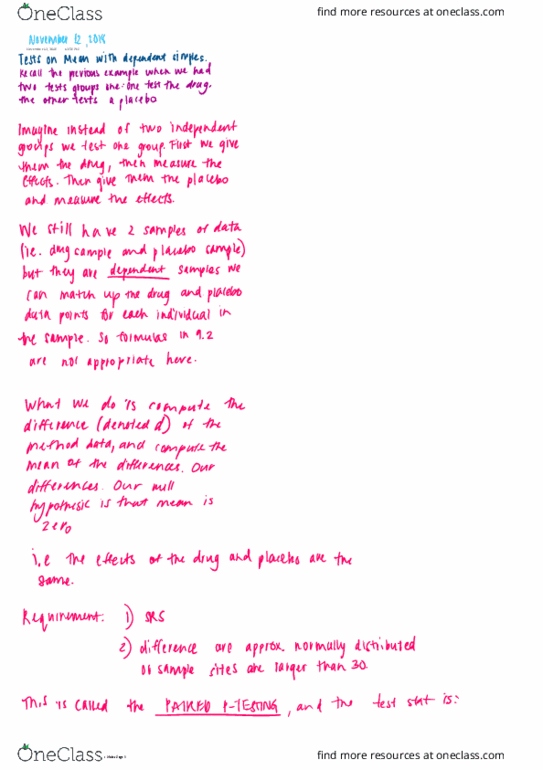 OneClass
find more resources at oneclass.com
November 12, 2018
Tests on Mean with dependent simples.
Recall the previous example when we had
two tests groups one: one test the drug.
the other tests a placebo
Imagine instead of two independent
groups we test one group. First we give
them the drug, then measure the
effects. Then give them the placebo
and measure the effects.
We still have 2 samples of data
(i.e. drug sample and placebo sample)
but they are dependent samples we
can match up the drug and placebo
data points for each individual in
the sample. So formulas in 9.2
are not appropriate here.
What we do is compute the
difference (denoted d) of the
method data, and compute the
mean of the differences. Our
differences. Our null
hypothesis is that mean is
zero
i.e the effects of the drug and placebo are the
same.
Requirement: 1) SRS
2) difference are approx. normally distributed
or sample sites are larger than 30.
This is called the PAIRED t-TESTING, and the test stat is:
OneClass
find more resources at oneclass.com